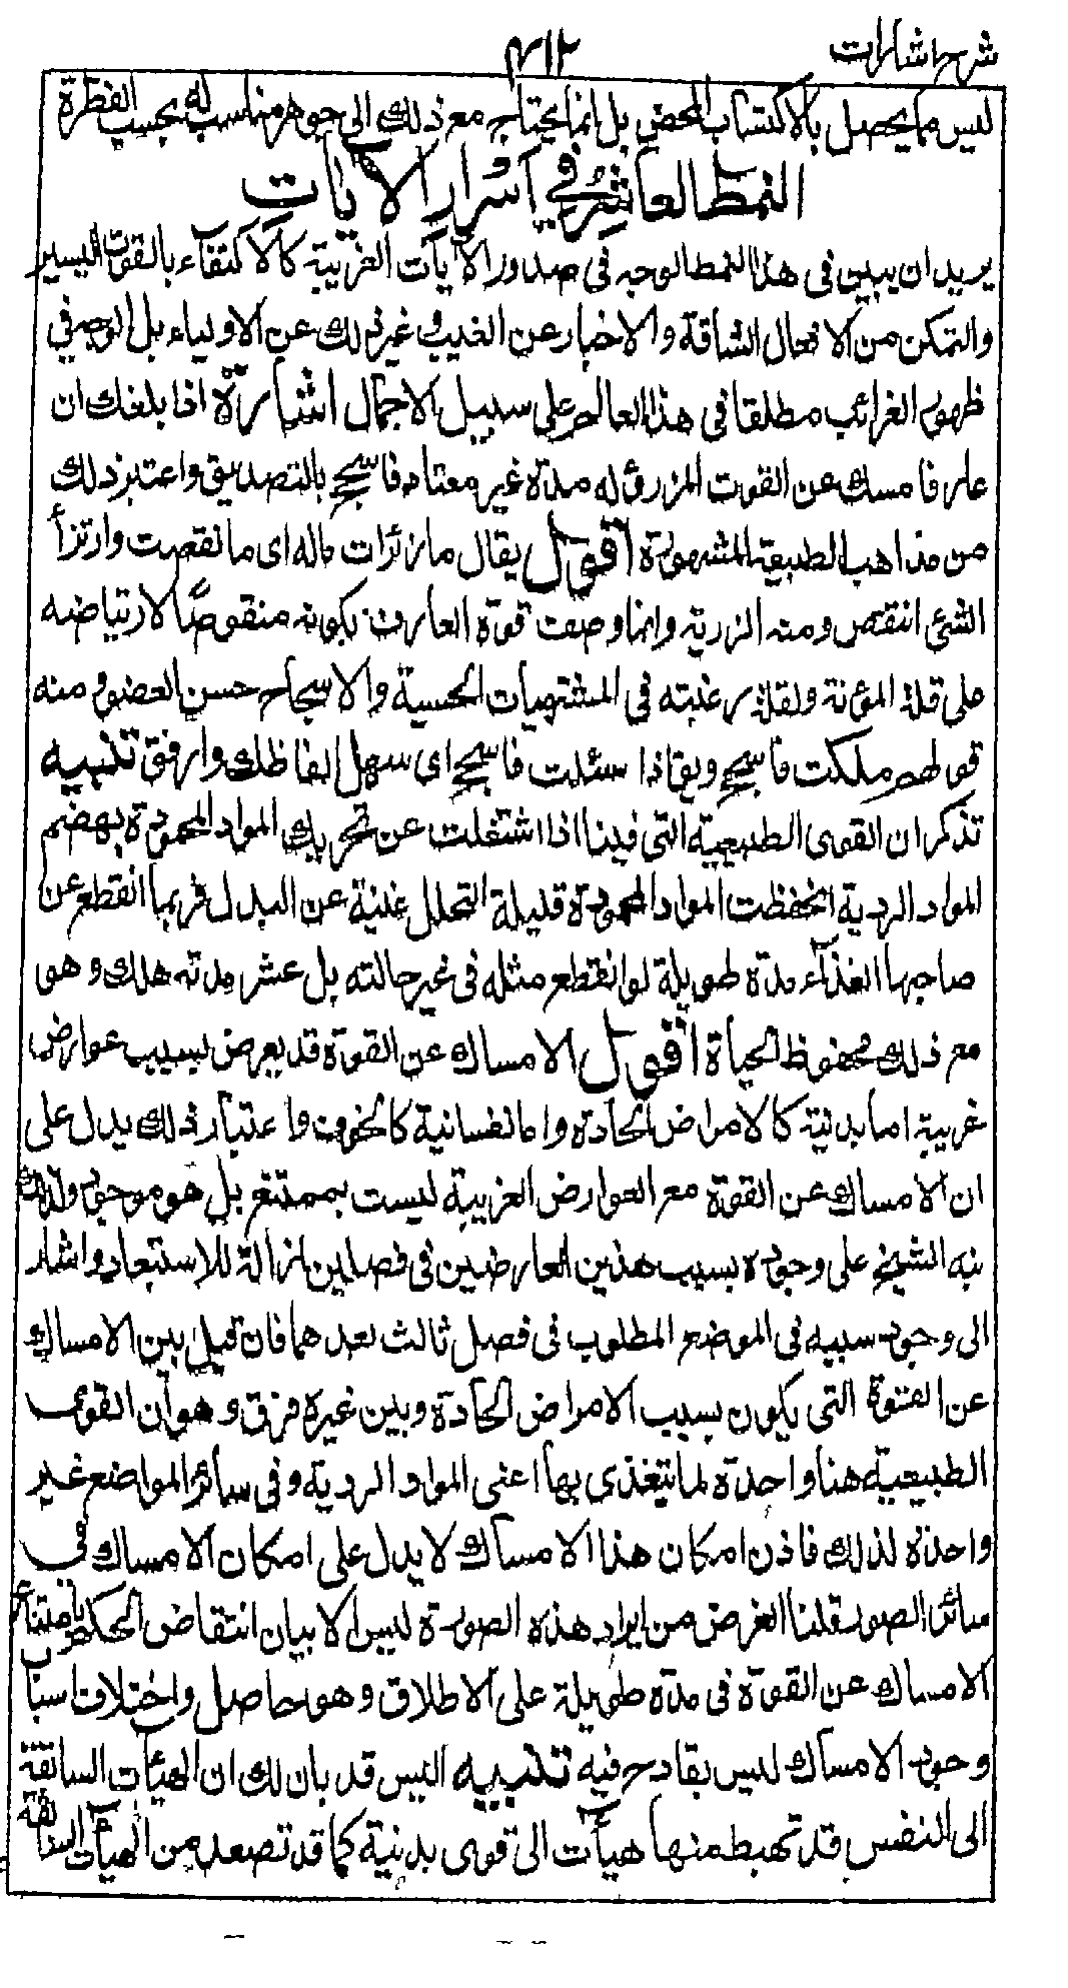 شرح اشارات
ليس مما يحصل بالاكتساب المحض بل انما يحتاج مع ذلك الى جوهر مناسب له بحسب الفطرة
النمط العاشر في اسرار الآيات
يريد ان يبين في هذا النمط الوجه في صدور الآيات الغريبة كالاكتفاء بالقوت اليسير
والتمكن من الافعال الشاقة والاخبار عن الغيب وغير ذلك عن الاولياء بل الوجه في
ظهور الغرائب مطلقا في هذا العالم على سبيل الاجمال اشارة اذا بلغك ان
عارفا مسك عن القوت المرزؤ له مدة غير معتاد فاسجح بالتصديق واعتبر ذلك
من مذاهب الطبيعة المشهورة اقول يقال ما رزئرات ماله اى ما نقصت وارتزأ
الشئ انتقص ومنه الرزية وانما وصف قوة العارف بكونه منقوصًا لارتياضه
على قلة المؤنة ولقلة رغبته في المشتهيات الحسية والاسجاح حسن العضو ومنه
قولهم ملكت فاسجح ويق اذا سئلت فاسجح اى سهل الفاظك وارفق تنبيه
تذكر ان القوى الطبيعية التى فينا اذا اشتغلت عن تحريك المواد المحمودة بهضم
المواد الردية انحفظت المواد المحمودة قليلة التحلل غنية عن البدل فربما انقطع عن
صاحبها الغذاء مدة طويلة لو انقطع مثله في غير حالته بل عشر مدته هلك وهو
مع ذلك محفوظ الحياة اقول الامساك عن القوة قد يعرض بسبب عوارض
غريبة اما بدنية كالامراض الحادة واما نفسانية كالخوف واعتبار ذلك يدل على
ان الامساك عن القوة مع العوارض الغريبة ليست بممتنع بل هو موجود ولذلك
نبه الشيخ على وجوده بسبب هذين العارضين في فصلين ازالة للاستبعاد واشار
الى وجود سببه في الموضع المطلوب في فصل ثالث بعدهما فان قيل بين الامساك
عن القوة التى يكون بسبب الامراض الحادة وبين غيره فرق وهو ان القوى
الطبيعية هنا واحدة لما تتغذى بها اعنى المواد الردية وفي سائر المواضع غير
واحدة لذلك فاذن امكان هذا الامساك لا يدل على امكان الامساك في
سائر الصور قلنا الغرض من ايراد هذه الصورة ليس الا بيان انتقاض الحكم بامتناع
الامساك عن القوة في مدة طويلة على الاطلاق وهو حاصل واختلاف اسباب
وجود الامساك ليس بقادح فيه تنبيه اليس قد بان لك ان الهيئات السابقة
الى النفس قد تهبط منها هيآت الى قوى بدنية كما قد تصعد من الهيآت السابقة